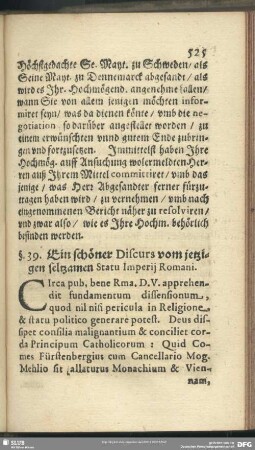 525
Höchstgedachte Se. Mayt. zu Schweden / als
Seine Mayt. zu Dennemarck abgesandt / als
wird es Ihr. Hochmögend. angenehme fallen /
wann Sie von allem jenigen möchten infor-
miret seyn / was da dienen könte / vmb die ne-
gotiation so darüber angestellet worden / zu
einem erwünschten vnnd gutem Ende zubrin-
gen vnd fortzusetzen. Immittelst haben Ihre
Hochmög. auff Ansuchung wolermeldten Her-
ren auß Ihrem Mittel committiret / vmb das
jenige / was Herr Abgesandter ferner fürzu-
tragen haben wird / zu vernehmen / vmb nach
eingenommenen Bericht näher zu resolviren /
vnd zwar also / wie es Ihre Hochm. behörlich
befinden werden.
§. 39. Ein schöner Discurs vom jetzi-
gen seltzamen Statu Imperij Romani.
CIrca pub. bene Rma. D.V. apprehen-
dit fundamentum dissensionum,
quod nil nisi pericula in Religione
& statu politico generare potest. Deus dis-
sipet consilia malignantium & conciliet cor-
da Principum Catholicorum : Quid Co-
mes Fürstenbergius cum Cancellario Mog.
Mehlio sit allaturus Monachium & Vien-
nam,